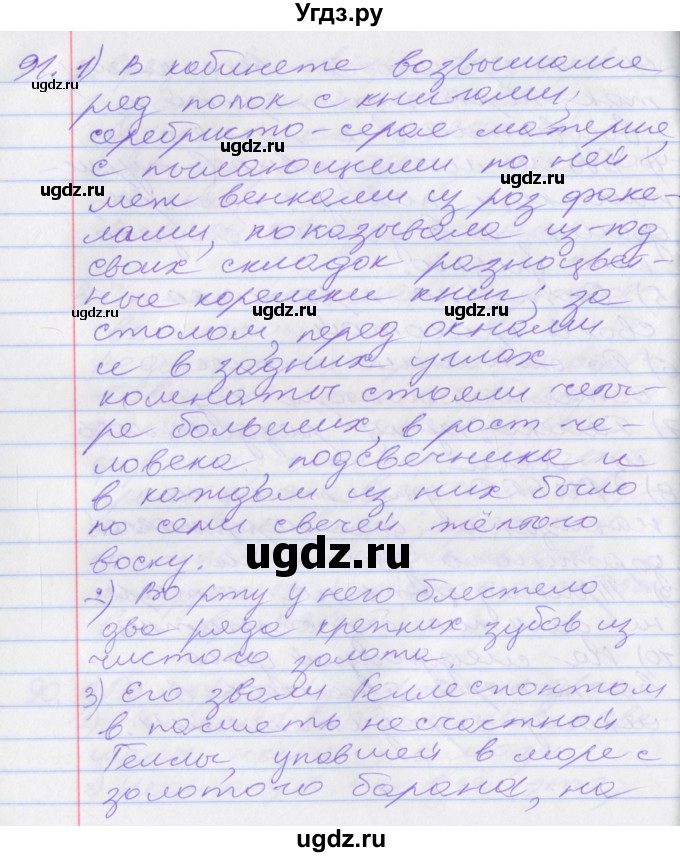 Угдз.ру
91. 1) В кабинете возвышался
ряд полок с книгами;
серебристо-серая материя,
с пылающими по ней
меж венками из роз факе-
лами, показывала из-под
своих складок разноцвет-
ные корешки книг; за
столом, перед окнами
и в задних углах
комнаты стояли четы-
ре больших, в рост че-
ловека, подсвечника и
в каждом из них было
по семи свечей жёлтого
воску.
2) Во рту у него блестело
два ряда крепких зубов из
чистого золота.
3) Его звали Геллеспонтом
в память несчастной
Геллы, упавшей в море с
золотого барана, на
ugdz.ru
ugdz.ru
ugdz.ru
ugdz.ru
ugdz.ru
ugdz.ru
ugdz.ru
ugdz.ru
ugdz.ru
ugdz.ru
ugdz.ru
ugdz.ru
ugdz.ru
ugdz.ru